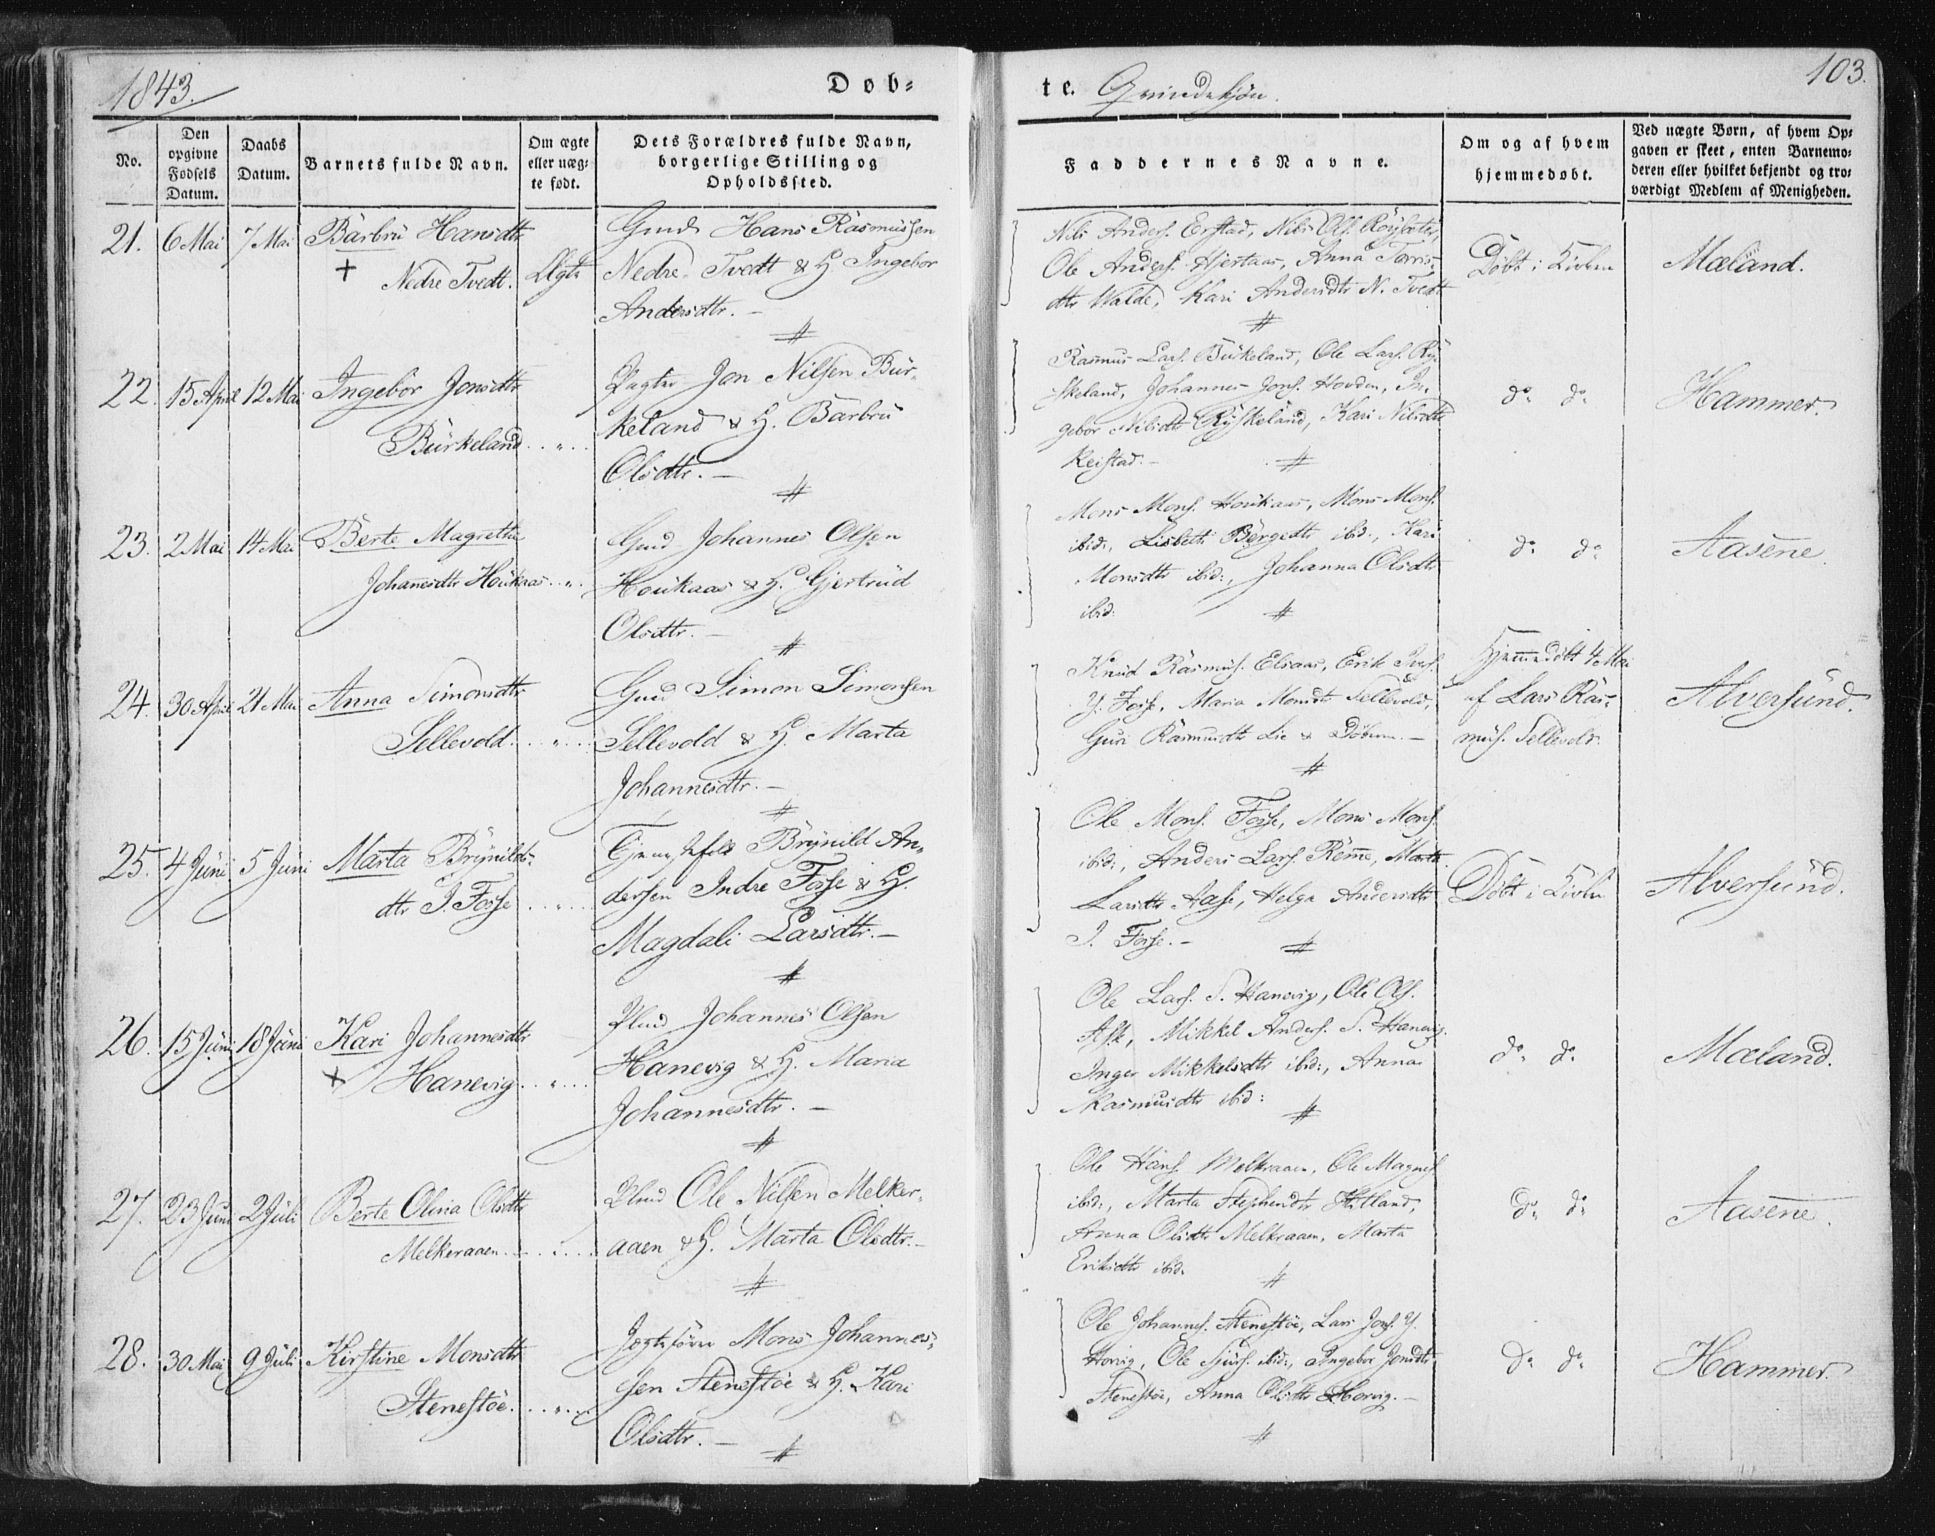 1843.
Døb=
te. Qvindekjøn.
103.
No.
Den opgivne Fødsels Datum.
Daabs Datum.
Barnets fulde Navn.
Om ægte eller uæg= te født.
Dets Forældres fulde Navn, borgerlige Stilling og Opholdssted.
Faddernes Navne.
Om og af hvem hjemmedøbt.
Ved uægte Børn, af hvem Op=
gaven er skeet, enten Barnemo=
deren eller hvilket bekjendt og tro=
værdigt Medlem af Menigheden.
21. 6 Mai 7 Mai Barbru Hansdtr
+ Nedre Tvedt. Ægte
Gmd Hans Rasmussen
Nedre Tvedt & H. Ingebor
Andersdtr. —
Nils Anders. Erstad, Nils Ols.
Ole Anders. Hjertaas, Anna
dtr Walde, Kari Andersdtr N. Tvedt
Døbt i Kirken
Mæland.
22. 15 April 12 Mai Ingebor Jonsdtr
Bürkeland . . „ . .
Jon Nilsen Bür=
keland & H. Barbru
Olsdtr. —
Rasmus Lars. Bürkeland, Ole Lars. Ry=
skeland, Johannes Jons. Hovden, In=
gebor Nilsdtr Ryskeland, Kari Nilsdtr
Keistad. —
do do
Hammer.
23. 2 Mai 14 Mai Berte Magrethe
Johannesdtr Houkaas . . „ .
Gmd Johannes Olsen
Houkaas & H. Gjertrud
Olsdtr. —
Mons Mons. Houkaas, Mons Mons.
ibid:, Lisbeth Børgesdtr ibid:, Kari
Monsdtr ibid:, Johanna Olsdtr
ibid:
do do
Aasene
24. 30 April 21 Mai Anna Simonsdtr
Sellevold. . . „ . .
Gmd Simon Simonsen
Sellevold & H. Marta
Johannesdtr. —
Knud Rasmus. Eliaas, Erik
Y. Fosse, Maria Monsdtr Sellevold,
Guri Rasmusdtr Lie &
Hjemmedøbt 4 Mai
af Lars Ras=
mus. Sellevold.
Alversund.
25. 4 Juni 5 Juni Marta Brynilds=
dtr I. Fosse . . „ . .
Brynild An=
dersen Indre Fosse & H.
Magdali Larsdtr. —
Ole Mons. Fosse, Mons Mons.
ibid:, Anders Lars. Rems, Marta
Larsdtr Aase, Helga Andersdtr
I. Fosse. —
Døbt i Kirken
Alversund.
26. 15 Juni 18 Juni Kari Johannesdtr
+ Hanevig . . „ . .
Johannes Olsen
Hanevig & H. Maria
Johannesdtr. —
Ole Lars. S. Hanevig, Ole Ols.
Ask, Mikkel Anders. S. Hanevig
Inger Mikkelsdtr ibid:, Anna
Rasmusdtr ibid:
do do
Mæland.
27. 23 Juni 2 Juli Berte Olina Olsdtr
Melkeraaen . . . . .
Ole Nilsen Melker=
aaen & H. Marta Olsdtr. —
Ole Hans. Melkraaen, Ole Magnes.
ibid:, Marta Stephensdtr Hitland,
Anna Olsdtr Melkraaen, Marta
Eriksdtr ibid.
do do
Aasene.
28. 30 Mai 9 Juli Kirstine Monsdtr
Stenestøe. . . „ . .
Jegtefører Mons Johannes=
sen Stenestøe & H. Kari
Olsdtr. —
Ole Johannes. Stenestøe, Lars Jons. Y.
Horvig, Ole Sjurs. ibid:, Ingebor Jonsdtr
Stenestøe, Anna Olsdtr Horvig. —
do do
Hammer.